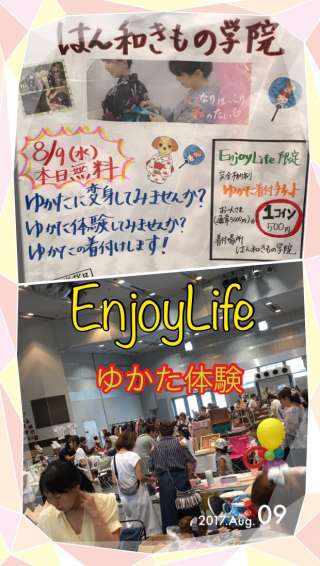 はん和きもの学院
8/9(水)
本日無料
ゆかたに変身してみませんか?
ゆかた体験してみませんか?
ゆかたの着付けします!
EnjoyLife 限定
完全予約制
1コイン
500円
着付場所
はん和きもの学院
EnjoyLife
ゆかた体験
2017.Aug. 09